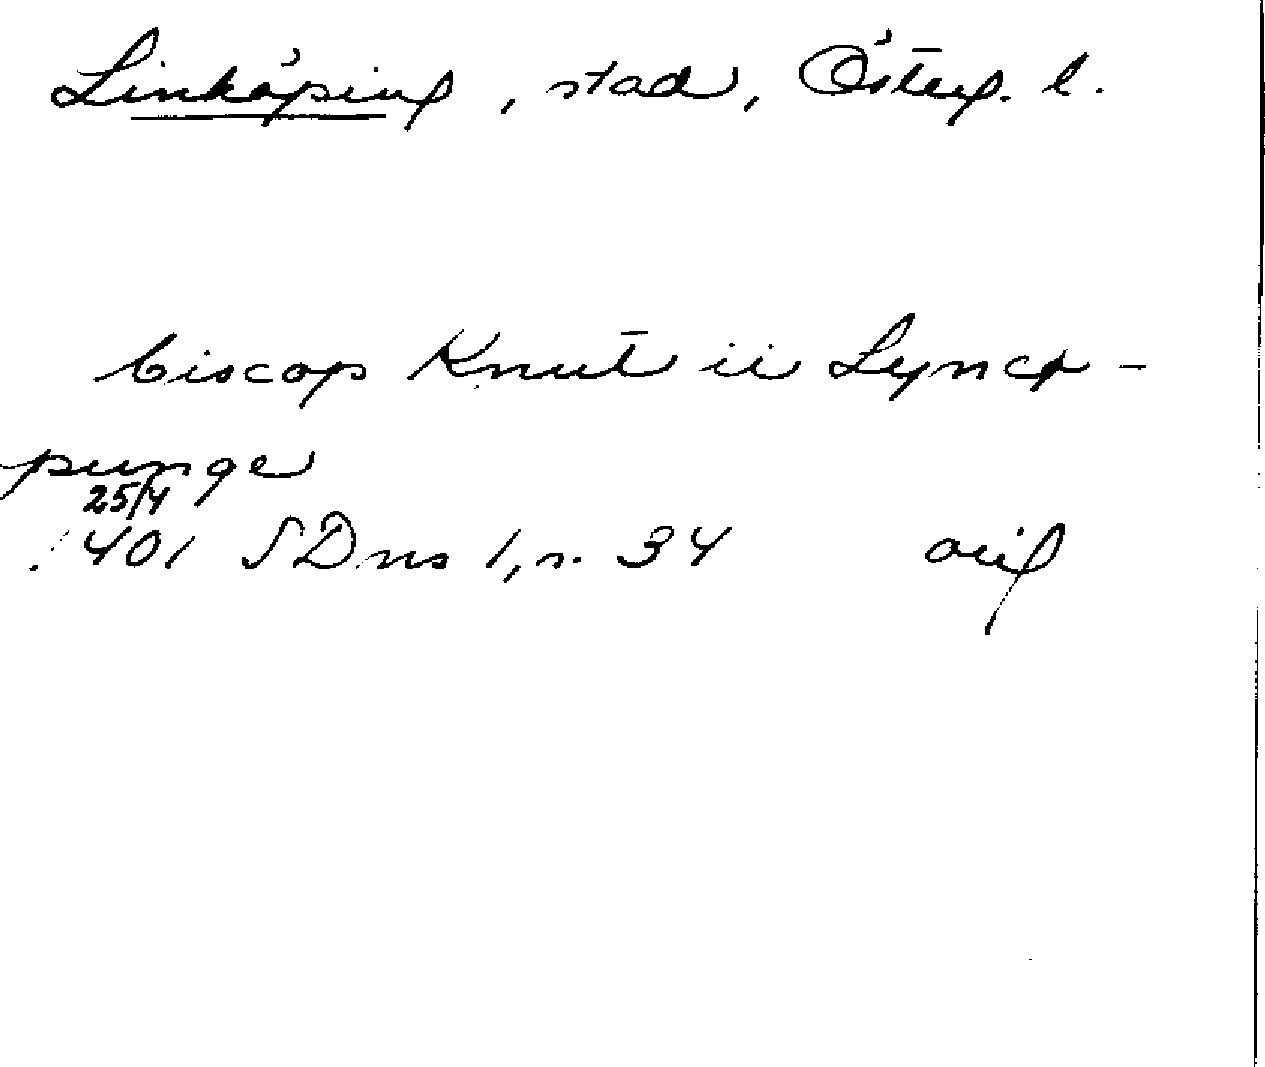 Linköping, stad, Österg. l.
biscop Knut ii Lyncø-
punge
25/4
1401 SDns 1, n. 34 orig